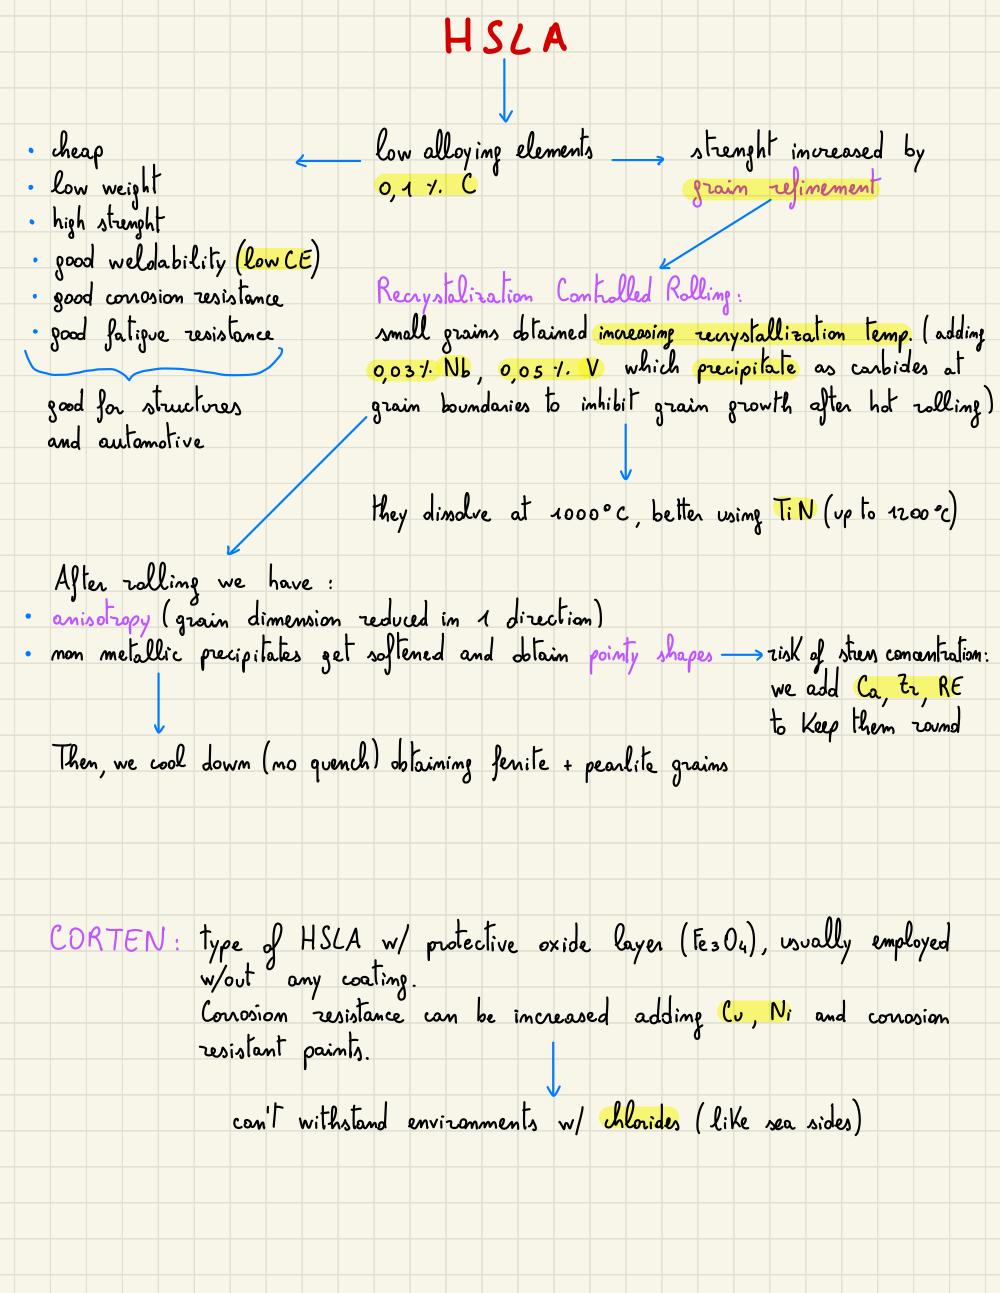 HSLA
• cheap
• low weight
• high strenght
• good weldability (low CE)
• good corrosion resistance
• good fatigue resistance
good for structures
and automotive
low alloying elements
0,1 % C
strenght increased by
grain refinement
Recrystalization Controlled Rolling:
small grains obtained increasing recrystallization temp. (adding
0,03% Nb, 0,05% V which precipitate as carbides at
grain boundaries to inhibit grain growth after hot rolling)
they dissolve at 1000°C, better using TiN (up to 1200°C)
After rolling we have :
• anisotropy (grain dimension reduced in 1 direction)
• non metallic precipitates get softened and obtain pointy shapes
risk of stress concentration:
we add Ca, Zr, RE
to keep them round
Then, we cool down (no quench) obtaining ferrite + pearlite grains
CORTEN: type of HSLA w/ protective oxide layer (Fe3O4), usually employed
w/out any coating.
Corrosion resistance can be increased adding Cu, Ni and corrosion
resistant paints.
can't withstand environments w/ chlorides (like sea sides)